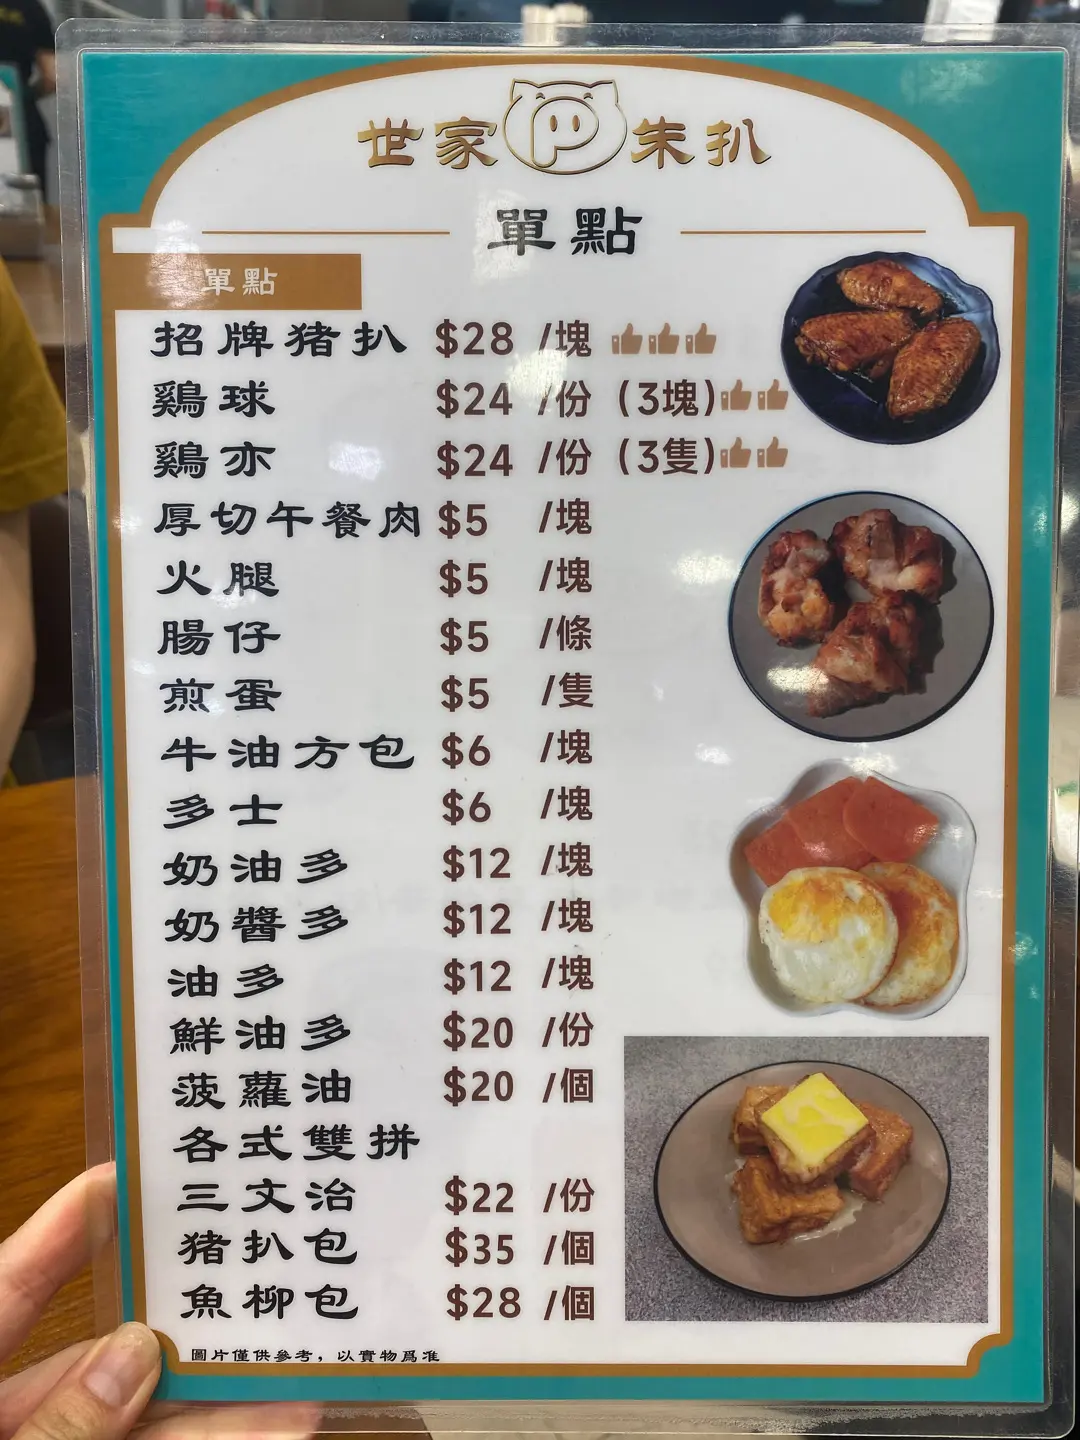 世家朱扒
單點
單點
招牌猪扒 $28 /塊
鷄球 $24 /份 (3塊)
鷄亦 $24 /份 (3隻)
厚切午餐肉 $5 /塊
火腿 $5 /塊
腸仔 $5 /條
煎蛋 $5 /隻
牛油方包 $6 /塊
多士 $6 /塊
奶油多 $12 /塊
奶醬多 $12 /塊
油多 $12 /塊
鮮油多 $20 /份
菠蘿油 $20 /個
各式雙拼
三文治 $22 /份
猪扒包 $35 /個
魚柳包 $28 /個
圖片僅供參考，以實物爲准